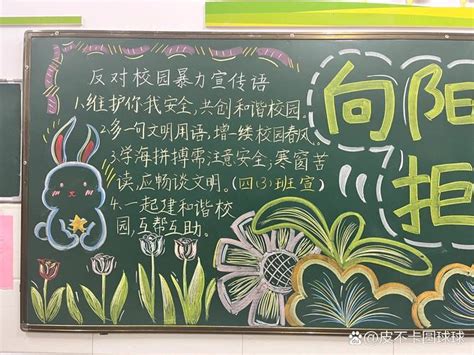 反对校园暴力宣传语
1.维护你我安全,共创和谐校园。
2.多一句文明用语,增一缕校园春风。
3.学海拼搏需注意安全;寒窗苦
读,应畅谈文明。(四(3)班宣)
4.一起建和谐校
园,互帮互助。
向阳
拒
@皮不卡圆球球